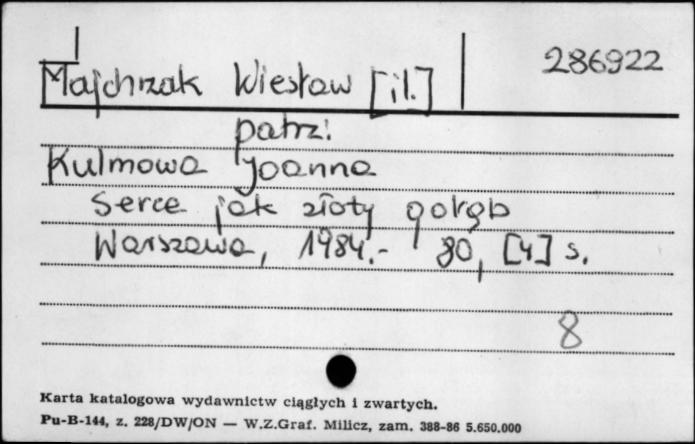 Majchrzak Wiesław [il.] 286922
patrz:
Kulmowa Joanna
Serce jak złoty gołąb
Warszawa, 1984.- 80, [4] s.
8
Karta katalogowa wydawnictw ciągłych i zwartych.
Pu-B-144, z. 228/DW/ON — W.Z.Graf. Milicz, zam. 388-86 5.650.000